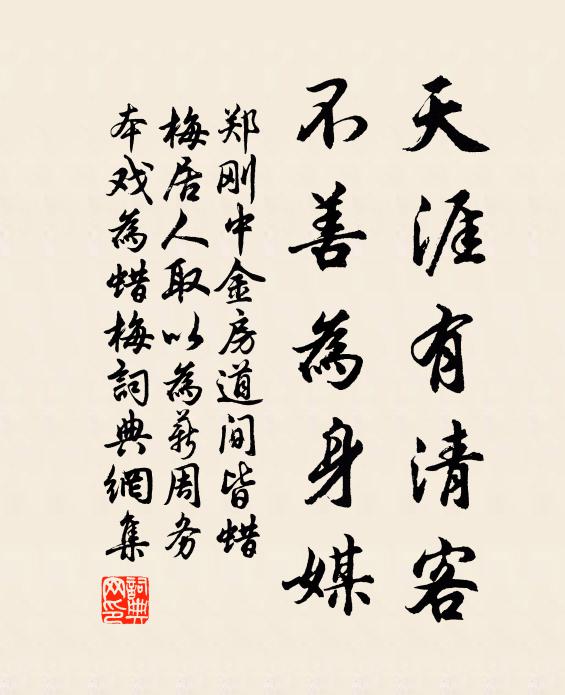 天涯有清客
不善為身媒
郑刚中金房道间皆蜡
梅居人取以為薪周务
本戏為蜡梅詞典網集
詞典網印